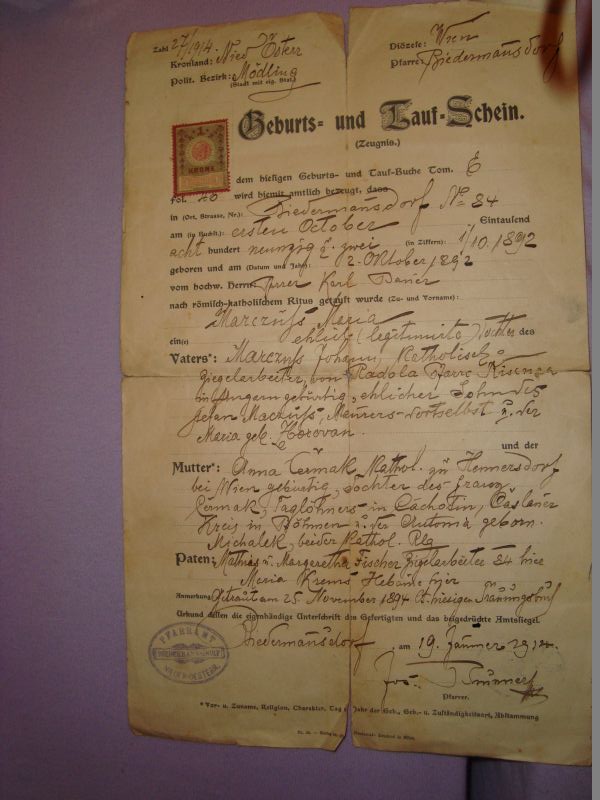 Zahl 27/1914.
Kronland: Nied. Österr
Polit. Bezirk: Mödling
(Stadt mit eig. Stat.)
Diözese: Wien
Pfarre: Biedermansdorf
Geburts- und Tauf-Schein.
(Zeugnis.)
1
KRONE
dem hiesigen Geburts- und Tauf-Buche Tom. E
fol. wird hiemit amtlich bezeugt, dass
in (Ort, Strasse, Nr.): Biedermansdorf No 34
am (in Buchst.): ersten October Eintausend
acht hundert neunzig u. zwei (in Ziffern): 1/10. 1892
geboren und am (Datum und Jahr): 2. Oktober 1892
vom hochw. Herrn: Pfarrer Karl Bauer
nach römisch-katholischem Ritus getauft wurde (Zu- und Vorname):
Marczuss Maria
ein(e) ehlich (legitimirte) Tochter des
Vaters*: Marczuss Johann, Katholisch
Ziegelarbeiter, von Radola Pfarre
in Ungarn gebürtig, ehlicher Sohn des
Stefan Maczuss, Maurers dortselbst u. der
Maria geb. Horovan.
und der
Mutter*: Anna Čermak, Kathol. zu Hennersdorf
bei Wien gebürtig, Tochter des Franz
Čermak, Taglöhners in Cachotin, Časlauer
Kreis in Böhmen u. der Antonia geborn.
Michalek, beider Kathol. Rlg
Paten: Mathias u. Margaretha Fischer Ziegelarbeiter 34 hier
Maria Krems Hebamme hier
Anmerkung Getraut am 25. November 1894 lt. hiesigen Trauungsbuch
Urkund dessen die eigenhändige Unterschrift des Gefertigten und das beigedrückte Amtssiegel.
Biedermansdorf, am 19. Jänner 1914.
PFARRAMT
BIEDERMANNSDORF
NIEDERÖSTERR.
Jos.
Pfarrer.
* Vor- u. Zuname, Religion, Charakter, Tag u. Jahr der Geb., Geb.- u. Zuständigkeitsort, Abstammung